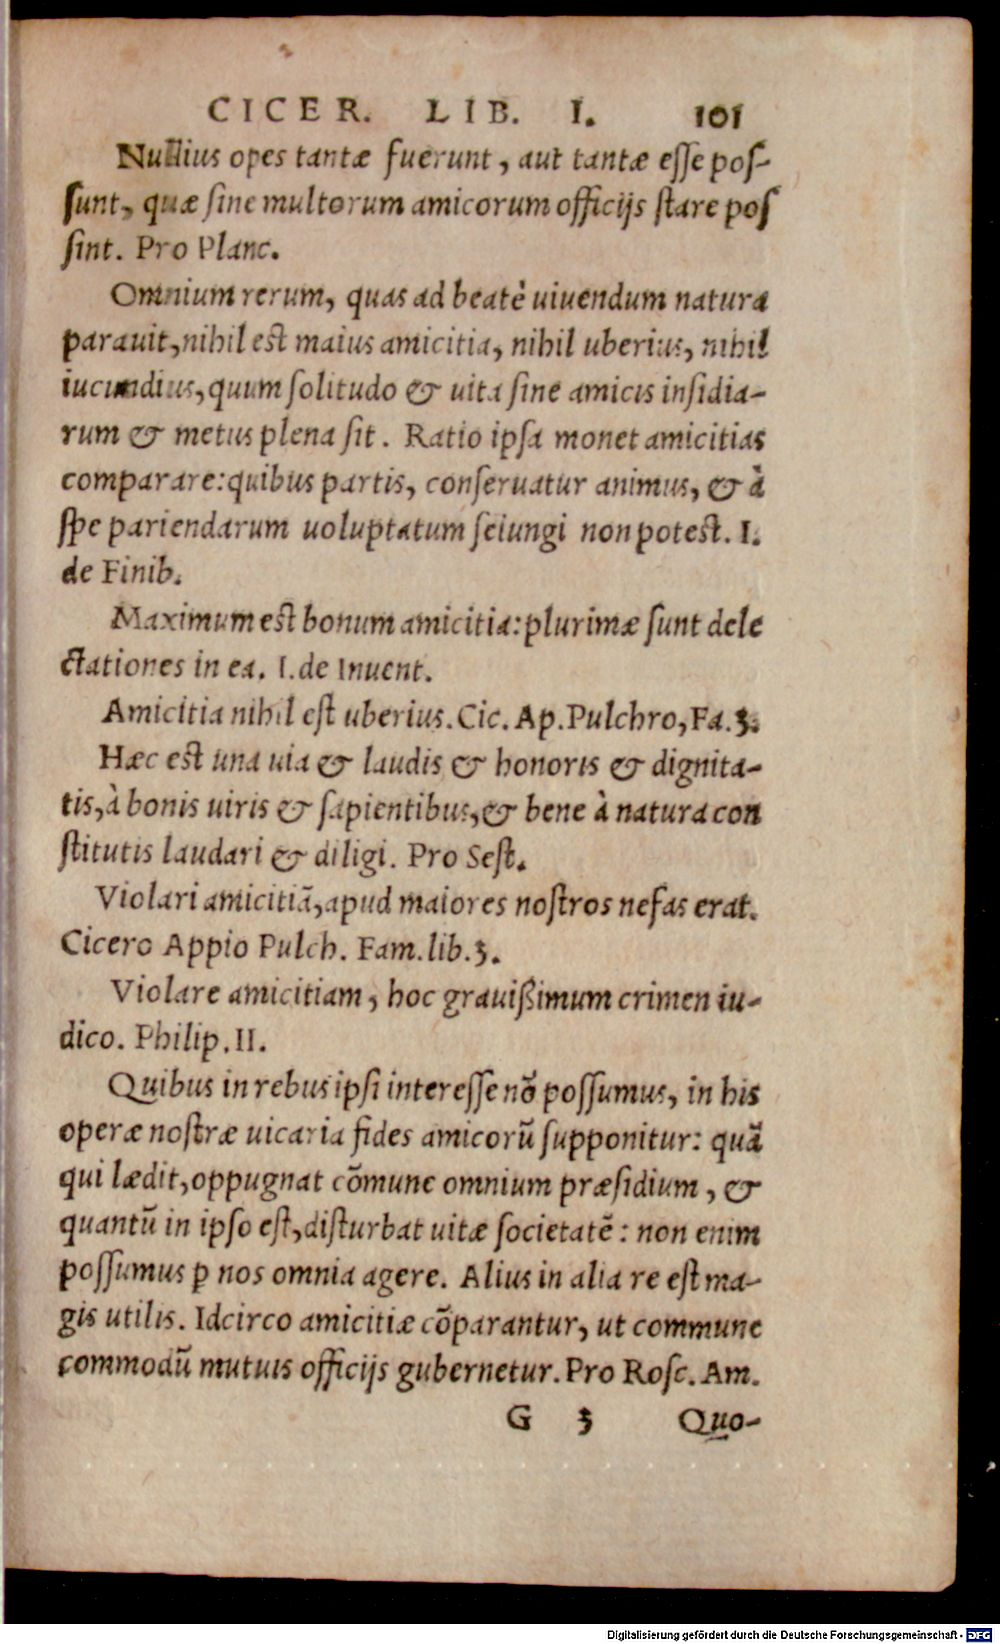 CICER. LIB. I. 101
Nullius opes tantæ fuerunt, aut tantæ esse pos-
sunt, quæ sine multorum amicorum officijs stare pos
sint. Pro Planc.
Omnium rerum, quas ad beatè uiuendum natura
parauit, nihil est maius amicitia, nihil uberius, nihil
iucundius, quum solitudo & uita sine amicis insidia-
rum & metus plena sit. Ratio ipsa monet amicitias
comparare: quibus partis, conseruatur animus, & à
spe pariendarum uoluptatum seiungi non potest. I.
de Finib.
Maximum est bonum amicitia: plurimæ sunt dele
ctationes in ea. I. de Inuent.
Amicitia nihil est uberius. Cic. Ap. Pulchro, Fa. 3.
Hæc est una uia & laudis & honoris & dignita-
tis, à bonis uiris & sapientibus, & bene à natura con
stitutis laudari & diligi. Pro Sest.
Violari amicitiã, apud maiores nostros nefas erat.
Cicero Appio Pulch. Fam. lib. 3.
Violare amicitiam, hoc grauißimum crimen iu-
dico. Philip. II.
Quibus in rebus ipsi interesse nõ possumus, in his
operæ nostræ uicaria fides amicorũ supponitur: quã
qui lædit, oppugnat cõmune omnium præsidium, &
quantũ in ipso est, disturbat uitæ societatẽ: non enim
possumus ꝑ nos omnia agere. Alius in alia re est ma-
gis utilis. Idcirco amicitiæ cõparantur, ut commune
commodũ mutuis officijs gubernetur. Pro Rosc. Am.
G 3 Quo-
Digitalisierung gefördert durch die Deutsche Forschungsgemeinschaft - DFG